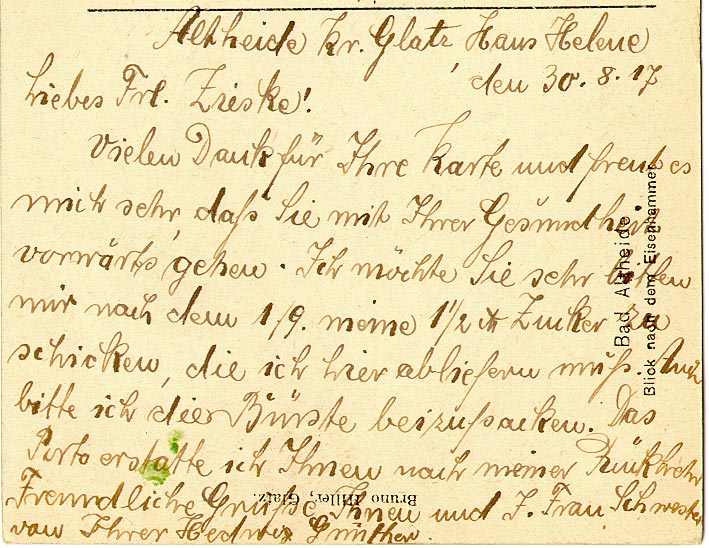 Altheide Kr. Glatz, Haus Helene
den 30.8.17
Liebes Frl. Zieske!
Vielen Dank für Ihre Karte und freut es
mich sehr, daß Sie mit Ihrer Gesundheit
vorwärts gehen. Ich möchte Sie sehr bitten
mir nach dem 1/9. meine 1 1/2 ℔ Zucker zu
schicken, die ich hier abliefern muß. Auch
bitte ich die Bürste beizupacken. Das
Porto erstatte ich Ihnen nach meiner Rückkehr
Freundliche Grüße Ihnen und I. Frau Schwester
von Ihrer Hedwig Günther.
Bad Altheide
Blick nach dem Eisenhammer
Bruno Hiller, Glatz.